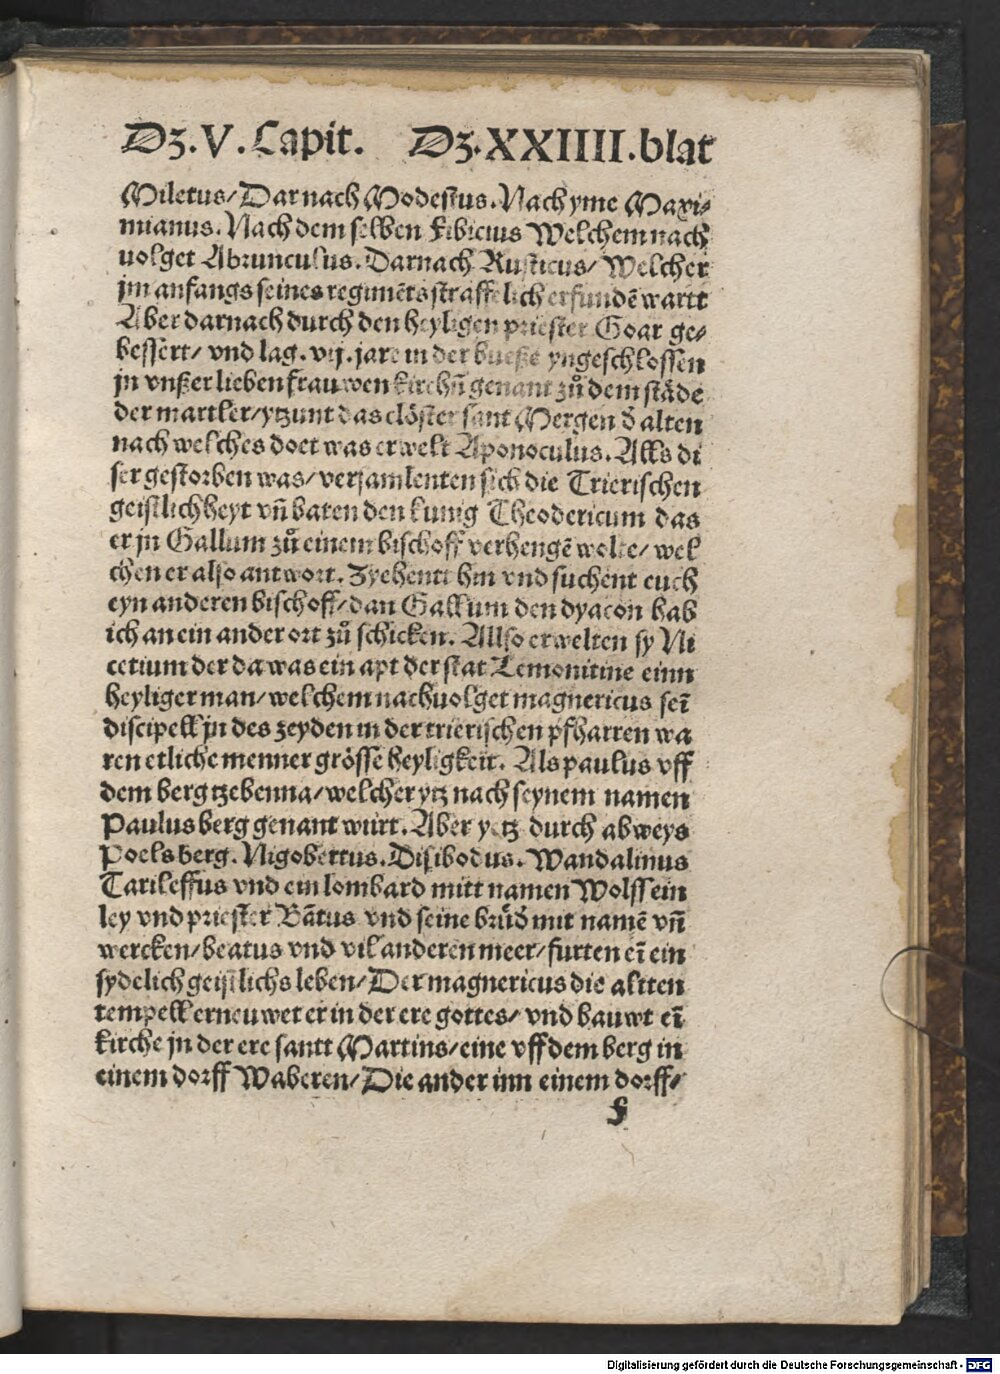 Dz.V.Capit. Dz.XXIIII.blat
Miletus/Darnach Modestus.Nach yme Maxi⸗
mianus.Nach dem selben Fibicius Welchem nach
uolget Abrunculus.Darnach Rusticus/Welcher
jm anfangs seines regimēts straffelich erfundē wartt
Aber darnach durch den heyligen priester Goar ge⸗
bessert/vnd lag.vij.jare in der bueße yngeschlossen
jn vnßer lieben frauwen kirchñ genant zů dem stāde
der martler/ytzunt das clöster sant Mergen đ alten
nach welches doet was erwelt Aponoculus.Alls di
ser gestorben was/versamlenten sich die Trierischen
geistlichheyt vñ baten den kunig Theodericum das
er jn Gallum zů einem bischoff verhengē wolte/wel
chen er also antwort.Zyehentt hin vnd suchent euch
eyn anderen bischoff/dan Gallum den dyacon hab
ich an ein ander ort zů schicken.Allso erwelten sy Ni
cetium der da was ein apt der stat Lemonitine einn
heyliger man/welchem nachuolget magnericus seī
discipell jn des zeyden in der trierischen pfharren wa
ren etliche menner grösse heyligkeit.Als paulus vff
dem berg tzebenna/welcher ytz nach seynem namen
Paulus berg genant würt.Aber yetz durch abweys
Poels berg.Nigobertus.Disibodus.Wandalinus
Tarileffus vnd ein lombard mitt namen Wolssein
ley vnd priester Bātus vnd seine brůđ mit namē vñ
wercken/beatus vnd vil anderen meer/furten eī ein
sydelich geistlichs leben/Der magnericus die altten
tempell erneuwet er in der ere gottes/vnd bauwt eī
kirche jn der ere santt Martins/eine vff dem berg in
einem dorff Waberen/Die ander inn einem dorff/
f
Digitalisierung gefördert durch die Deutsche Forschungsgemeinschaft - DFG